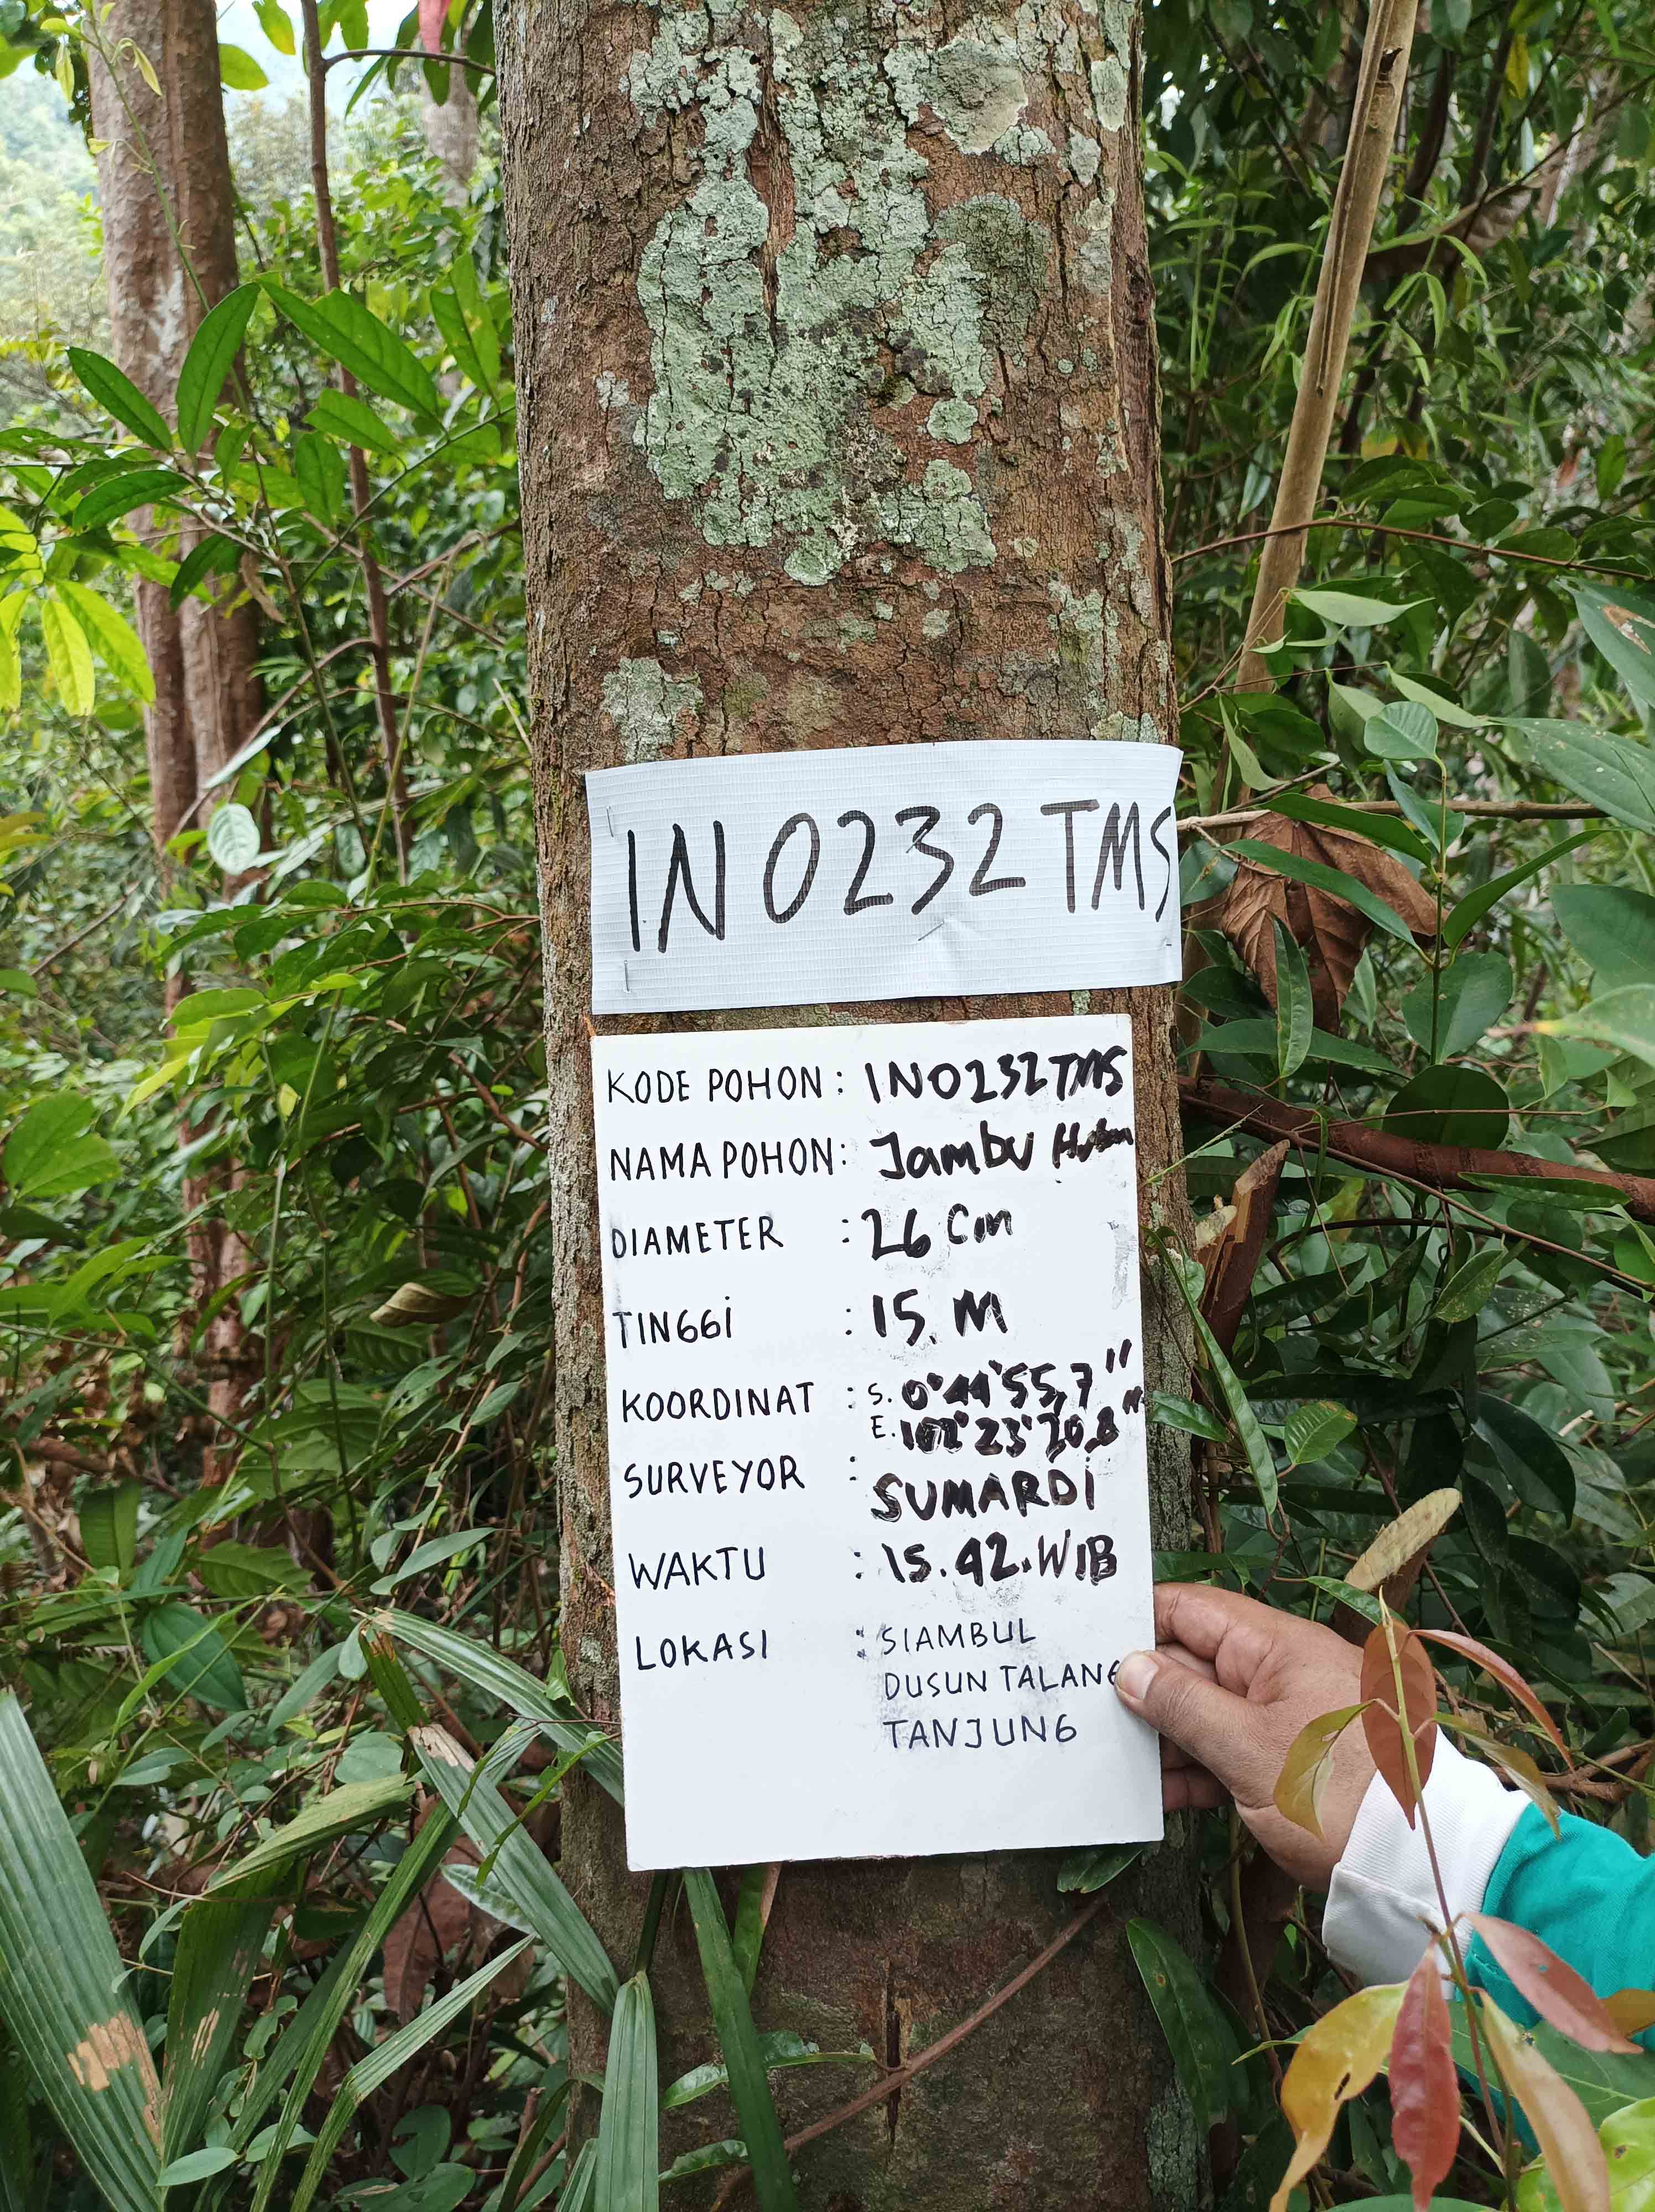 INO232TMS
KODE POHON : INO232TMS
NAMA POHON : Jambu Hutan
DIAMETER : 26 Cm
TINGGI : 15. M
KOORDINAT : S. 0°44'55,7"
E. 102°23'20,8"
SURVEYOR : SUMARDI
WAKTU : 15.42.WIB
LOKASI : SIAMBUL
DUSUN TALANG
TANJUNG